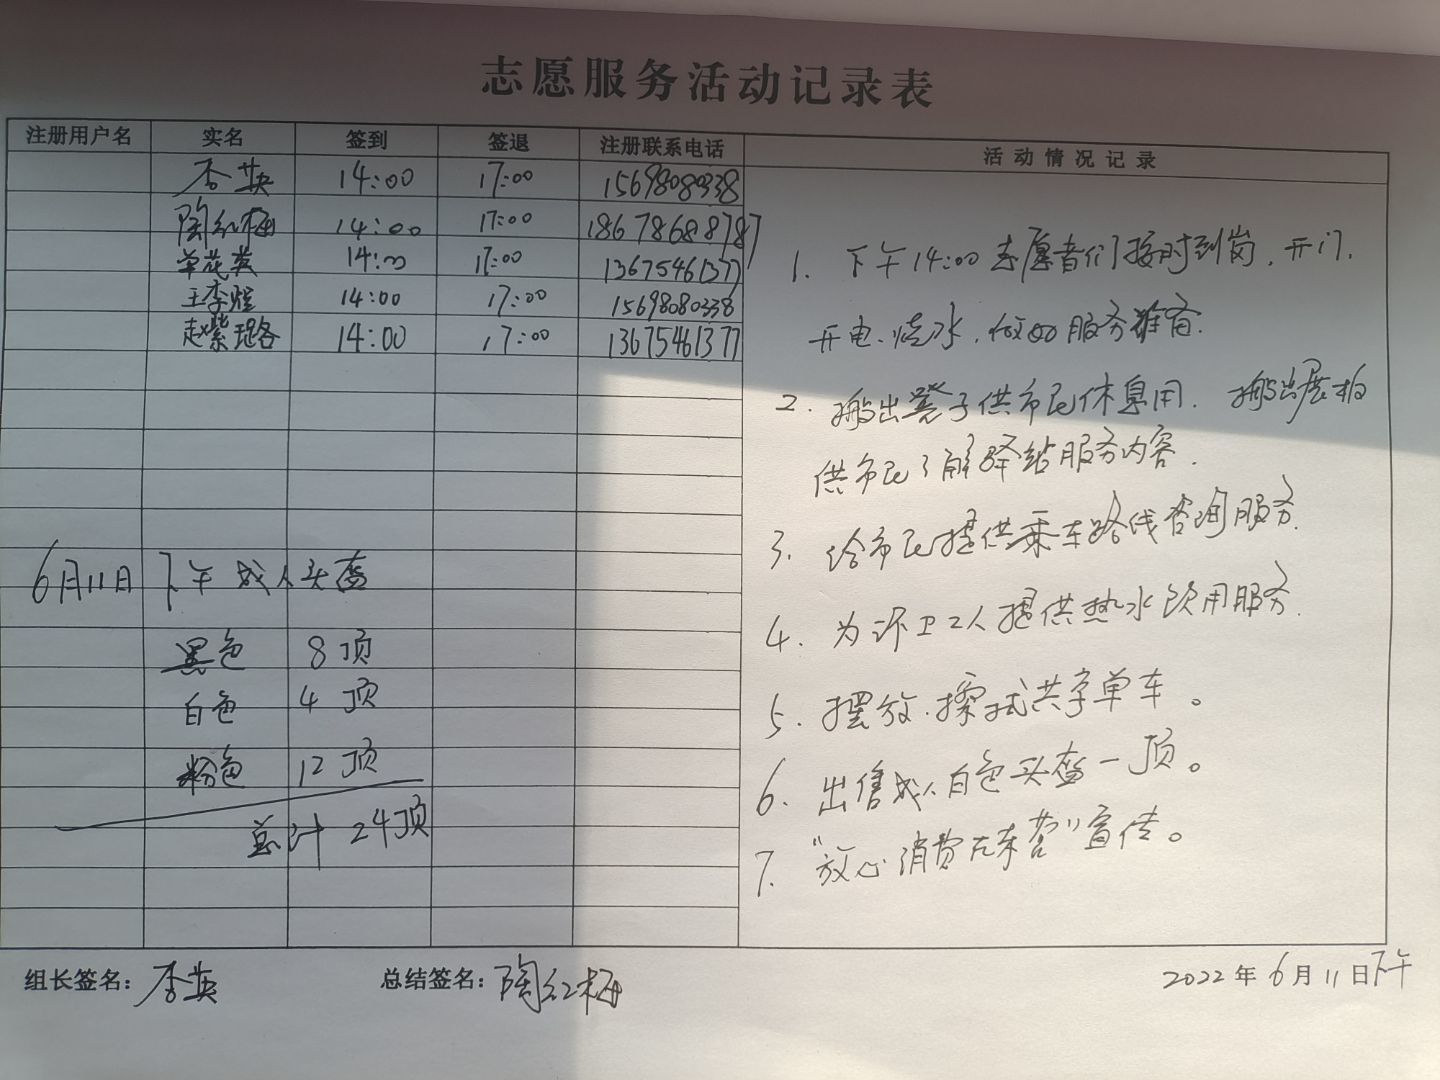 志愿服务活动记录表
注册用户名 实名 签到 签退 注册联系电话 活动情况记录
李英 14:00 17:00 15698080338
陶红梅 14:00 17:00 18678688787
单花英 14:00 17:00 13675461377
王李煜 14:00 17:00 15698080338
赵紫璐 14:00 17:00 13675461377
6月11日 下午 成人头盔
黑色 8顶
白色 4顶
粉色 12顶
总计 24顶
1. 下午14:00志愿者们按时到岗,开门,
开电、烧水,做好服务准备.
2. 搬出凳子供市民休息用. 搬出展板
供市民了解驿站服务内容.
3. 给市民提供乘车路线咨询服务.
4. 为环卫工人提供热水饮用服务.
5. 摆放、擦拭共享单车。
6. 出售成人白色头盔一顶。
7. “放心消费在东营”宣传。
组长签名: 李英 总结签名: 陶红梅 2022年6月11日下午